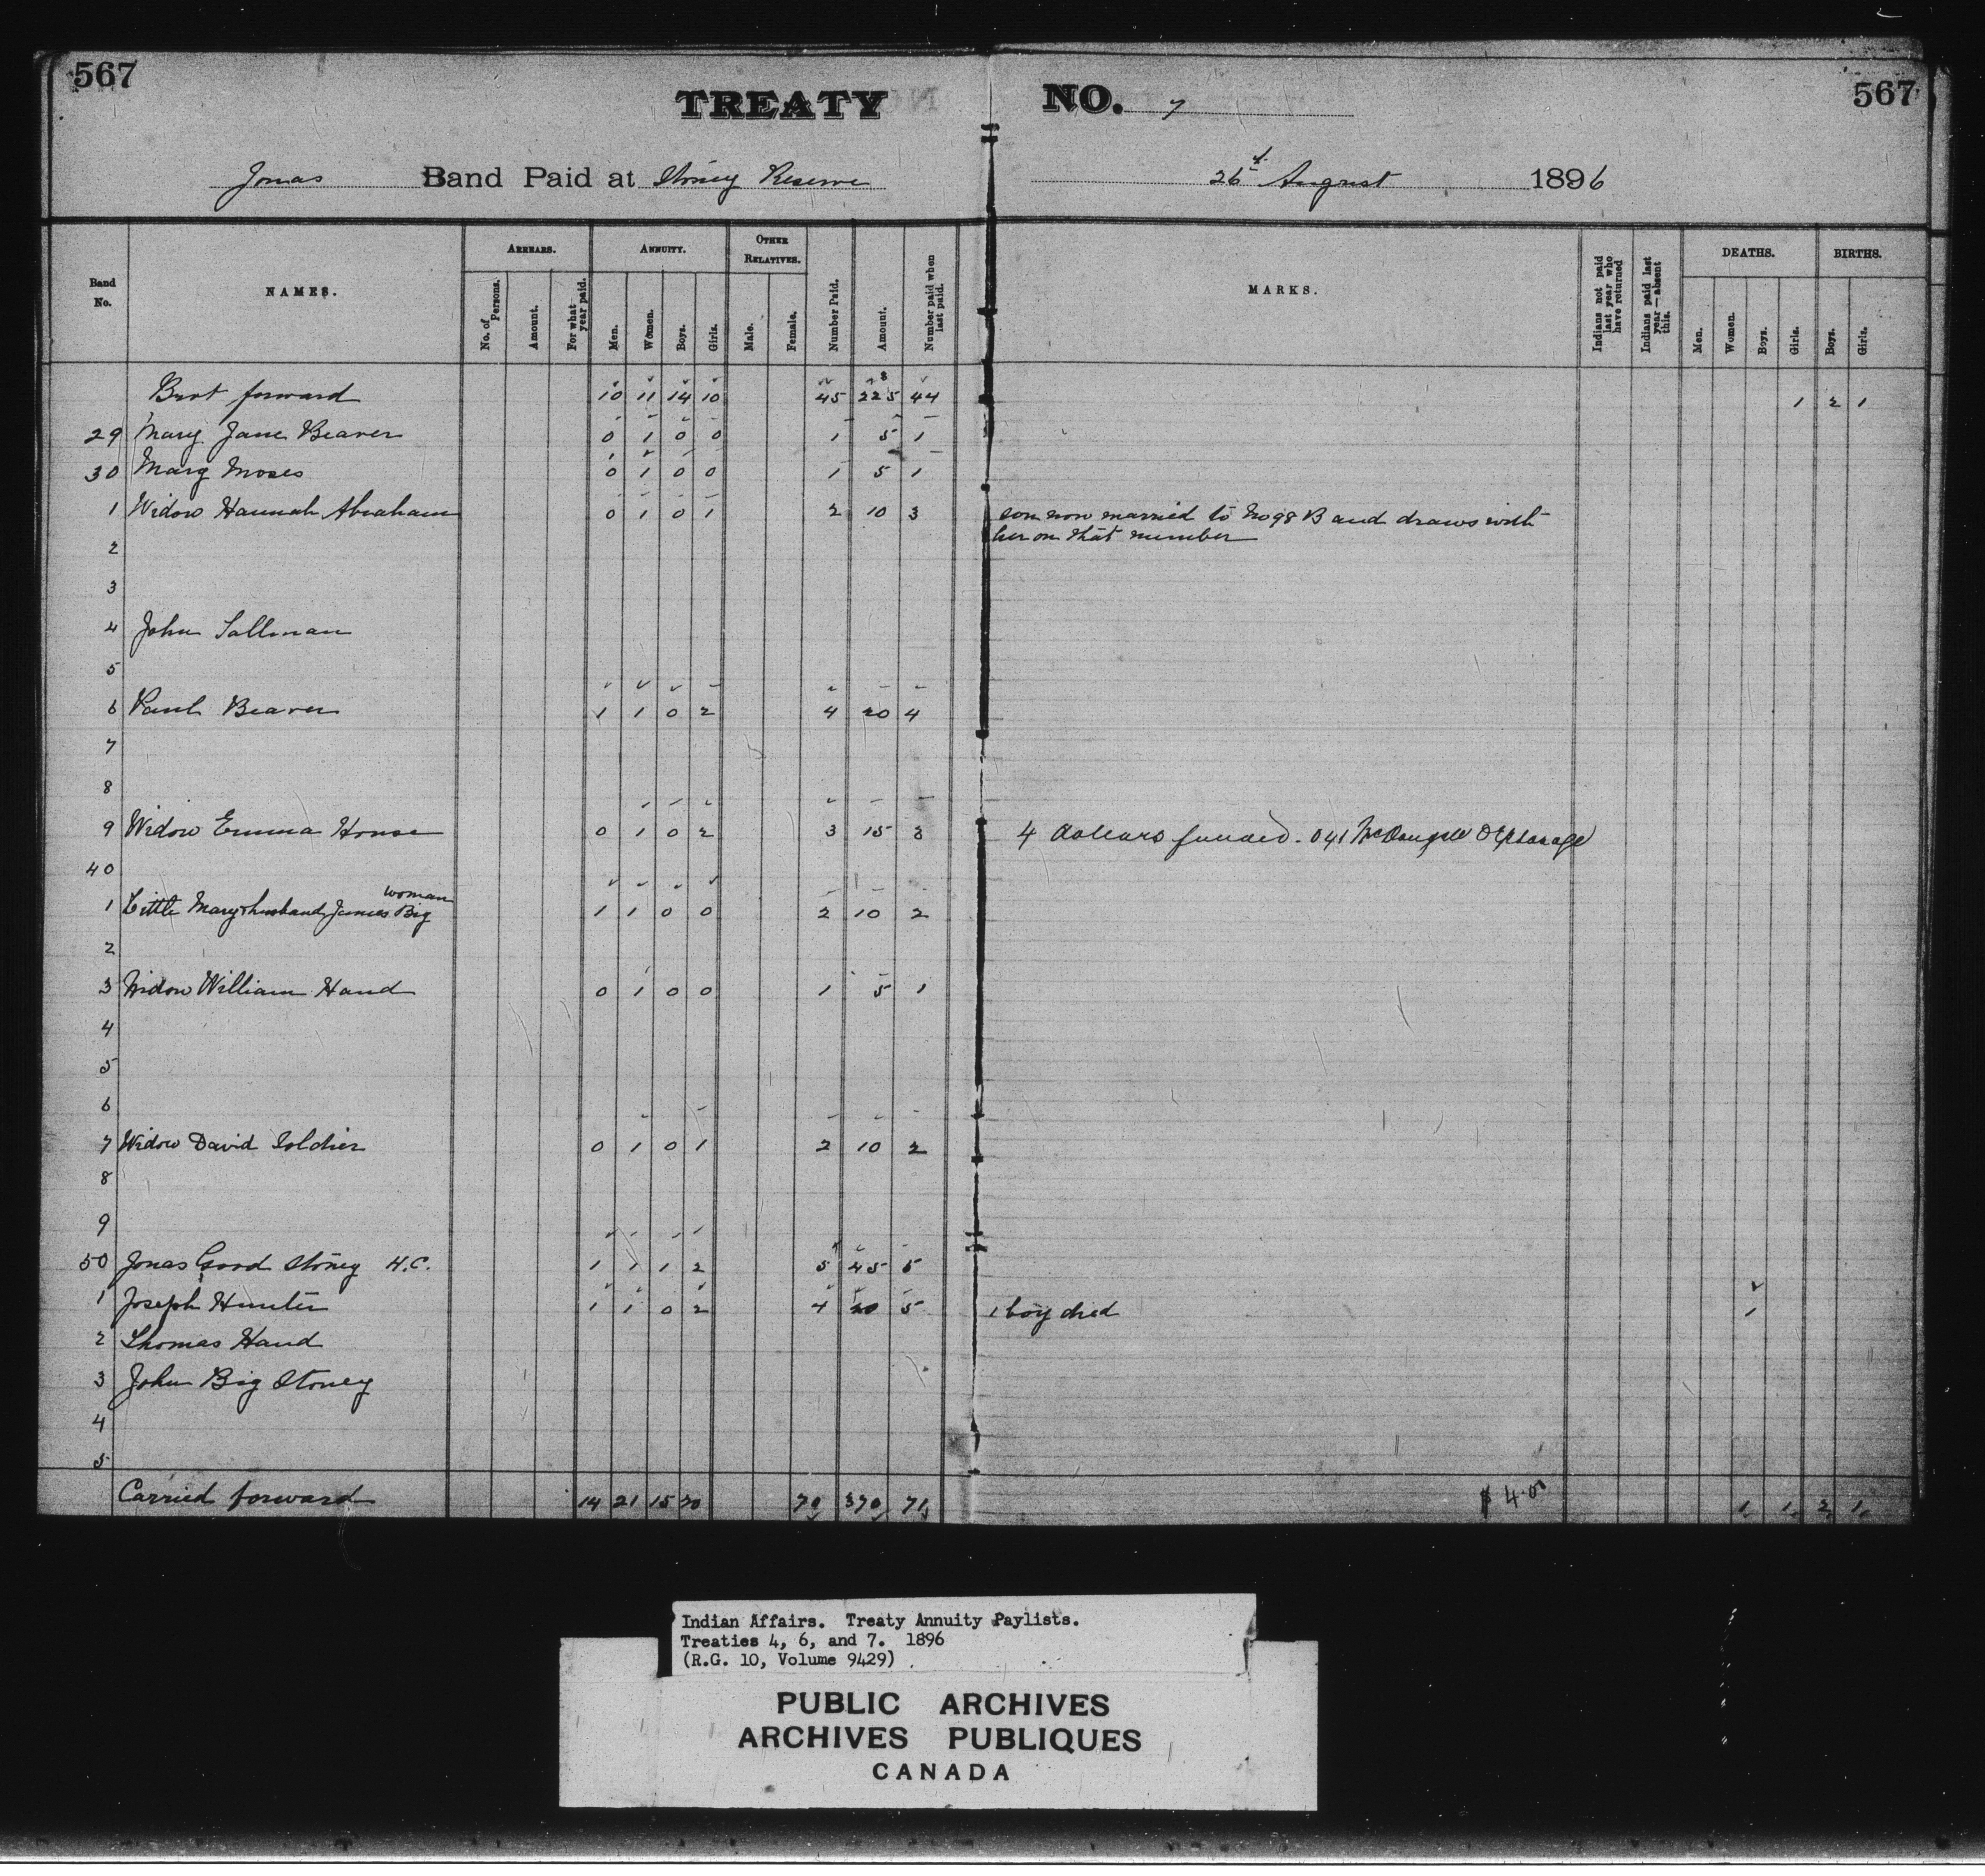 567
567
TREATY NO. 7
Jonas Band Paid at Stoney Reserve 26 August 1896
Band No.
NAMES.
ARREARS.
No. of Persons.
Amount.
For what year paid.
ANNUITY.
Men.
Women.
Boys.
Girls.
OTHER RELATIVES.
Male.
Female.
Number Paid.
Amount.
Number paid when last paid.
MARKS.
Indians not paid last year who have returned
Indians paid last year—absent this.
DEATHS.
Men.
Women.
Boys.
Girls.
BIRTHS.
Boys.
Girls.
Brot forward 10 11 14 10 45 225 44 1 2 1
29 Mary Jane Beaver 0 1 0 0 1 5 1
30 Mary Moses 0 1 0 0 1 5 1
1 Widow Hannah Abraham 0 1 0 1 2 10 3 son now married to No 98 B and draws with
her on that number
2
3
4 John Tallman
5
6 Paul Beaver 1 1 0 2 4 20 4
7
8
9 Widow Emma House 0 1 0 2 3 15 3 4 dollars funded. 041 McDougall Orphanage
40
woman
1 Little Mary & husband James Big 1 1 0 0 2 10 2
2
3 Widow William Hand 0 1 0 0 1 5 1
4
5
6
7 Widow David Soldier 0 1 0 1 2 10 2
8
9
50 Jonas Good Stoney H.C. 1 1 1 2 5 45 5
1 Joseph Hunter 1 1 0 2 4 20 5 1 boy died 1
2 Thomas Hand
3 John Big Stoney
4
5
Carried forward 14 21 15 20 70 370 71 $ 4.00 1 1 2 1
Indian Affairs. Treaty Annuity Paylists.
Treaties 4, 6, and 7. 1896
(R.G. 10, Volume 9429)
PUBLIC ARCHIVES
ARCHIVES PUBLIQUES
CANADA